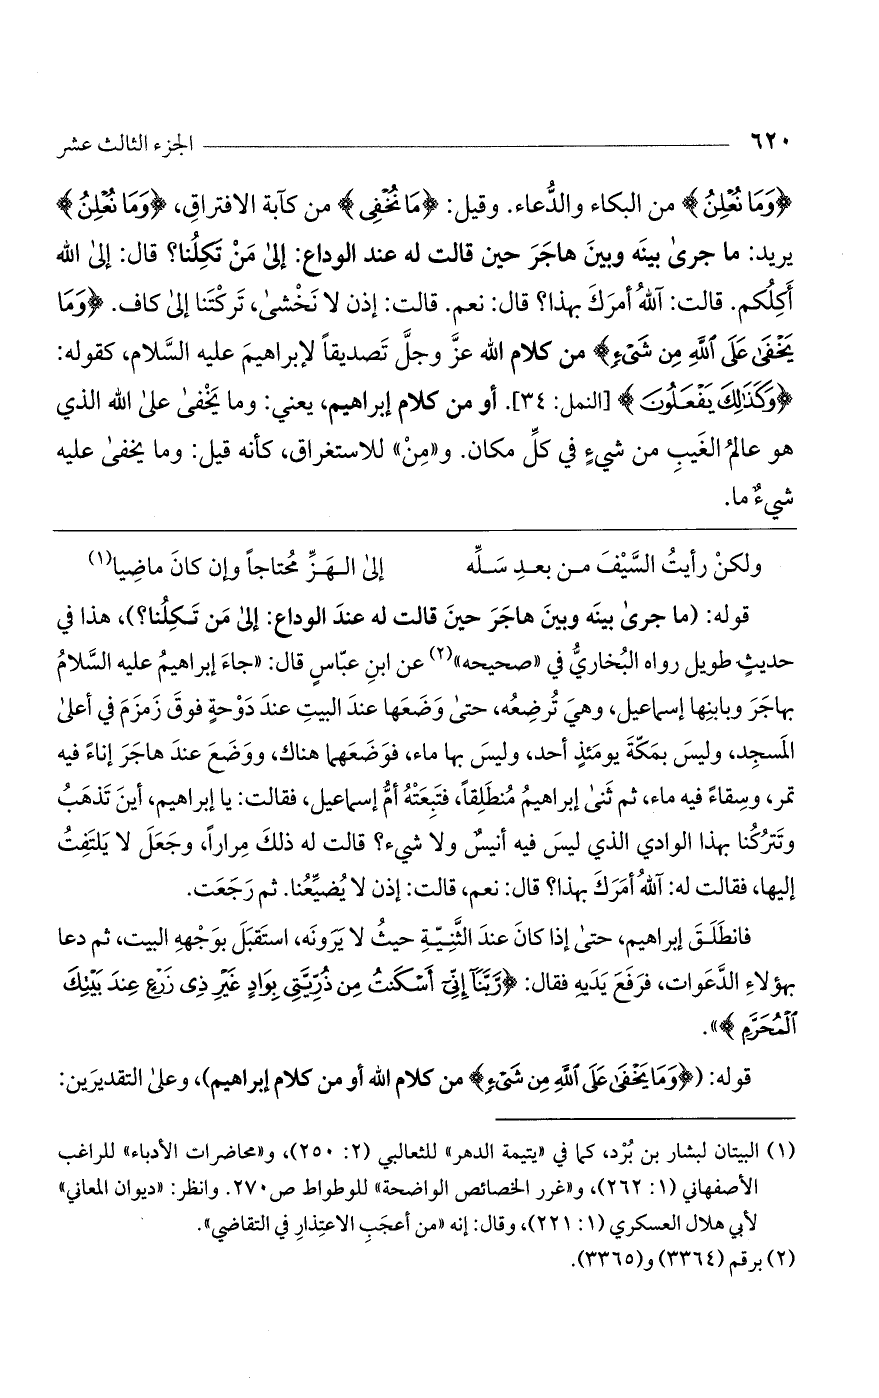 ٦٢٠ الجزء الثالث عشر
﴿وَمَا نُعْلِنُ﴾ من البكاء والدُّعاء. وقيل: ﴿مَا نُخْفِى﴾ من كآبة الافتراقِ، ﴿وَمَا نُعْلِنُ﴾
يريد: ما جرىٰ بينَه وبينَ هاجَرَ حين قالت له عند الوداع: إلىٰ مَنْ تَكِلُنا؟ قال: إلىٰ الله
أَكِلُكم. قالت: آللهُ أمرَكَ بهذا؟ قال: نعم. قالت: إذن لا نَخْشىٰ، تَركْتَنا إلىٰ كاف. ﴿وَمَا
يَخْفَىٰ عَلَى ٱللَّهِ مِن شَىْءٍ﴾ من كلام الله عزَّ وجلَّ تَصديقاً لإبراهيمَ عليه السَّلام، كقوله:
﴿وَكَذَٰلِكَ يَفْعَلُونَ﴾ [النمل: ٣٤]. أو من كلام إبراهيم، يعني: وما يَخْفىٰ علىٰ الله الذي
هو عالمُ الغَيبِ من شيءٍ في كلِّ مكان. و«مِنْ» للاستغراق، كأنه قيل: وما يخفىٰ عليه
شيءٌ ما.
ولكنْ رأيتُ السَّيْفَ مـن بعـدِ سَـلِّه إلىٰ الـهَـزِّ مُحتاجاً وإن كانَ ماضِيا(١)
قوله: (ما جرىٰ بينَه وبينَ هاجَرَ حينَ قالت له عندَ الوداع: إلىٰ مَن تَـكِلُنا؟)، هذا في
حديثٍ طويل رواه البُخاريُّ في «صحيحه»(٢) عن ابنِ عبّاسٍ قال: «جاءَ إبراهيمُ عليه السَّلامُ
بهاجَرَ وبابنِها إسماعيل، وهيَ تُرضِعُه، حتىٰ وَضَعَها عندَ البيتِ عندَ دَوْحةٍ فوقَ زَمزَمَ في أعلىٰ
المَسجِد، وليسَ بمكّةَ يومَئذٍ أحد، وليسَ بها ماء، فوَضَعَهما هناك، ووَضَعَ عندَ هاجَرَ إناءً فيه
تمر، وسِقاءً فيه ماء، ثم ثَنىٰ إبراهيمُ مُنطَلِقاً، فتَبِعَتْهُ أمُّ إسماعيل، فقالت: يا إبراهيم، أينَ تَذهَبُ
وتَترُكُنا بهذا الوادي الذي ليسَ فيه أنيسٌ ولا شيء؟ قالت له ذلكَ مِراراً، وجَعَلَ لا يَلتَفِتُ
إليها، فقالت له: آللهُ أمَرَكَ بهذا؟ قال: نعم، قالت: إذن لا يُضيِّعُنا. ثم رَجَعَت.
فانطَلَـقَ إبراهيم، حتىٰ إذا كانَ عندَ الثَّنِـيّـةِ حيثُ لا يَرَونَه، استَقبَلَ بوَجْهِهِ البيت، ثم دعا
بهؤلاءِ الدَّعَوات، فرَفَعَ يَدَيهِ فقال: ﴿رَّبَّنَآ إِنِّىٓ أَسْكَنتُ مِن ذُرِّيَّتِى بِوَادٍ غَيْرِ ذِى زَرْعٍ عِندَ بَيْتِكَ
ٱلْمُحَرَّمِ﴾».
قوله: (﴿وَمَا يَخْفَىٰ عَلَى ٱللَّهِ مِن شَىْءٍ﴾ من كلام الله أو من كلام إبراهيم)، وعلىٰ التقديرَين:
(١) البيتان لبشار بن بُرْد، كما في «يتيمة الدهر» للثعالبي (٢: ٢٥٠)، و«محاضرات الأدباء» للراغب
الأصفهاني (١: ٢٦٢)، و«غرر الخصائص الواضحة» للوطواط ص٢٧٠. وانظر: «ديوان المعاني»
لأبي هلال العسكري (١: ٢٢١)، وقال: إنه «من أعجَبِ الاعتِذارِ في التقاضي».
(٢) برقم (٣٣٦٤) و(٣٣٦٥).